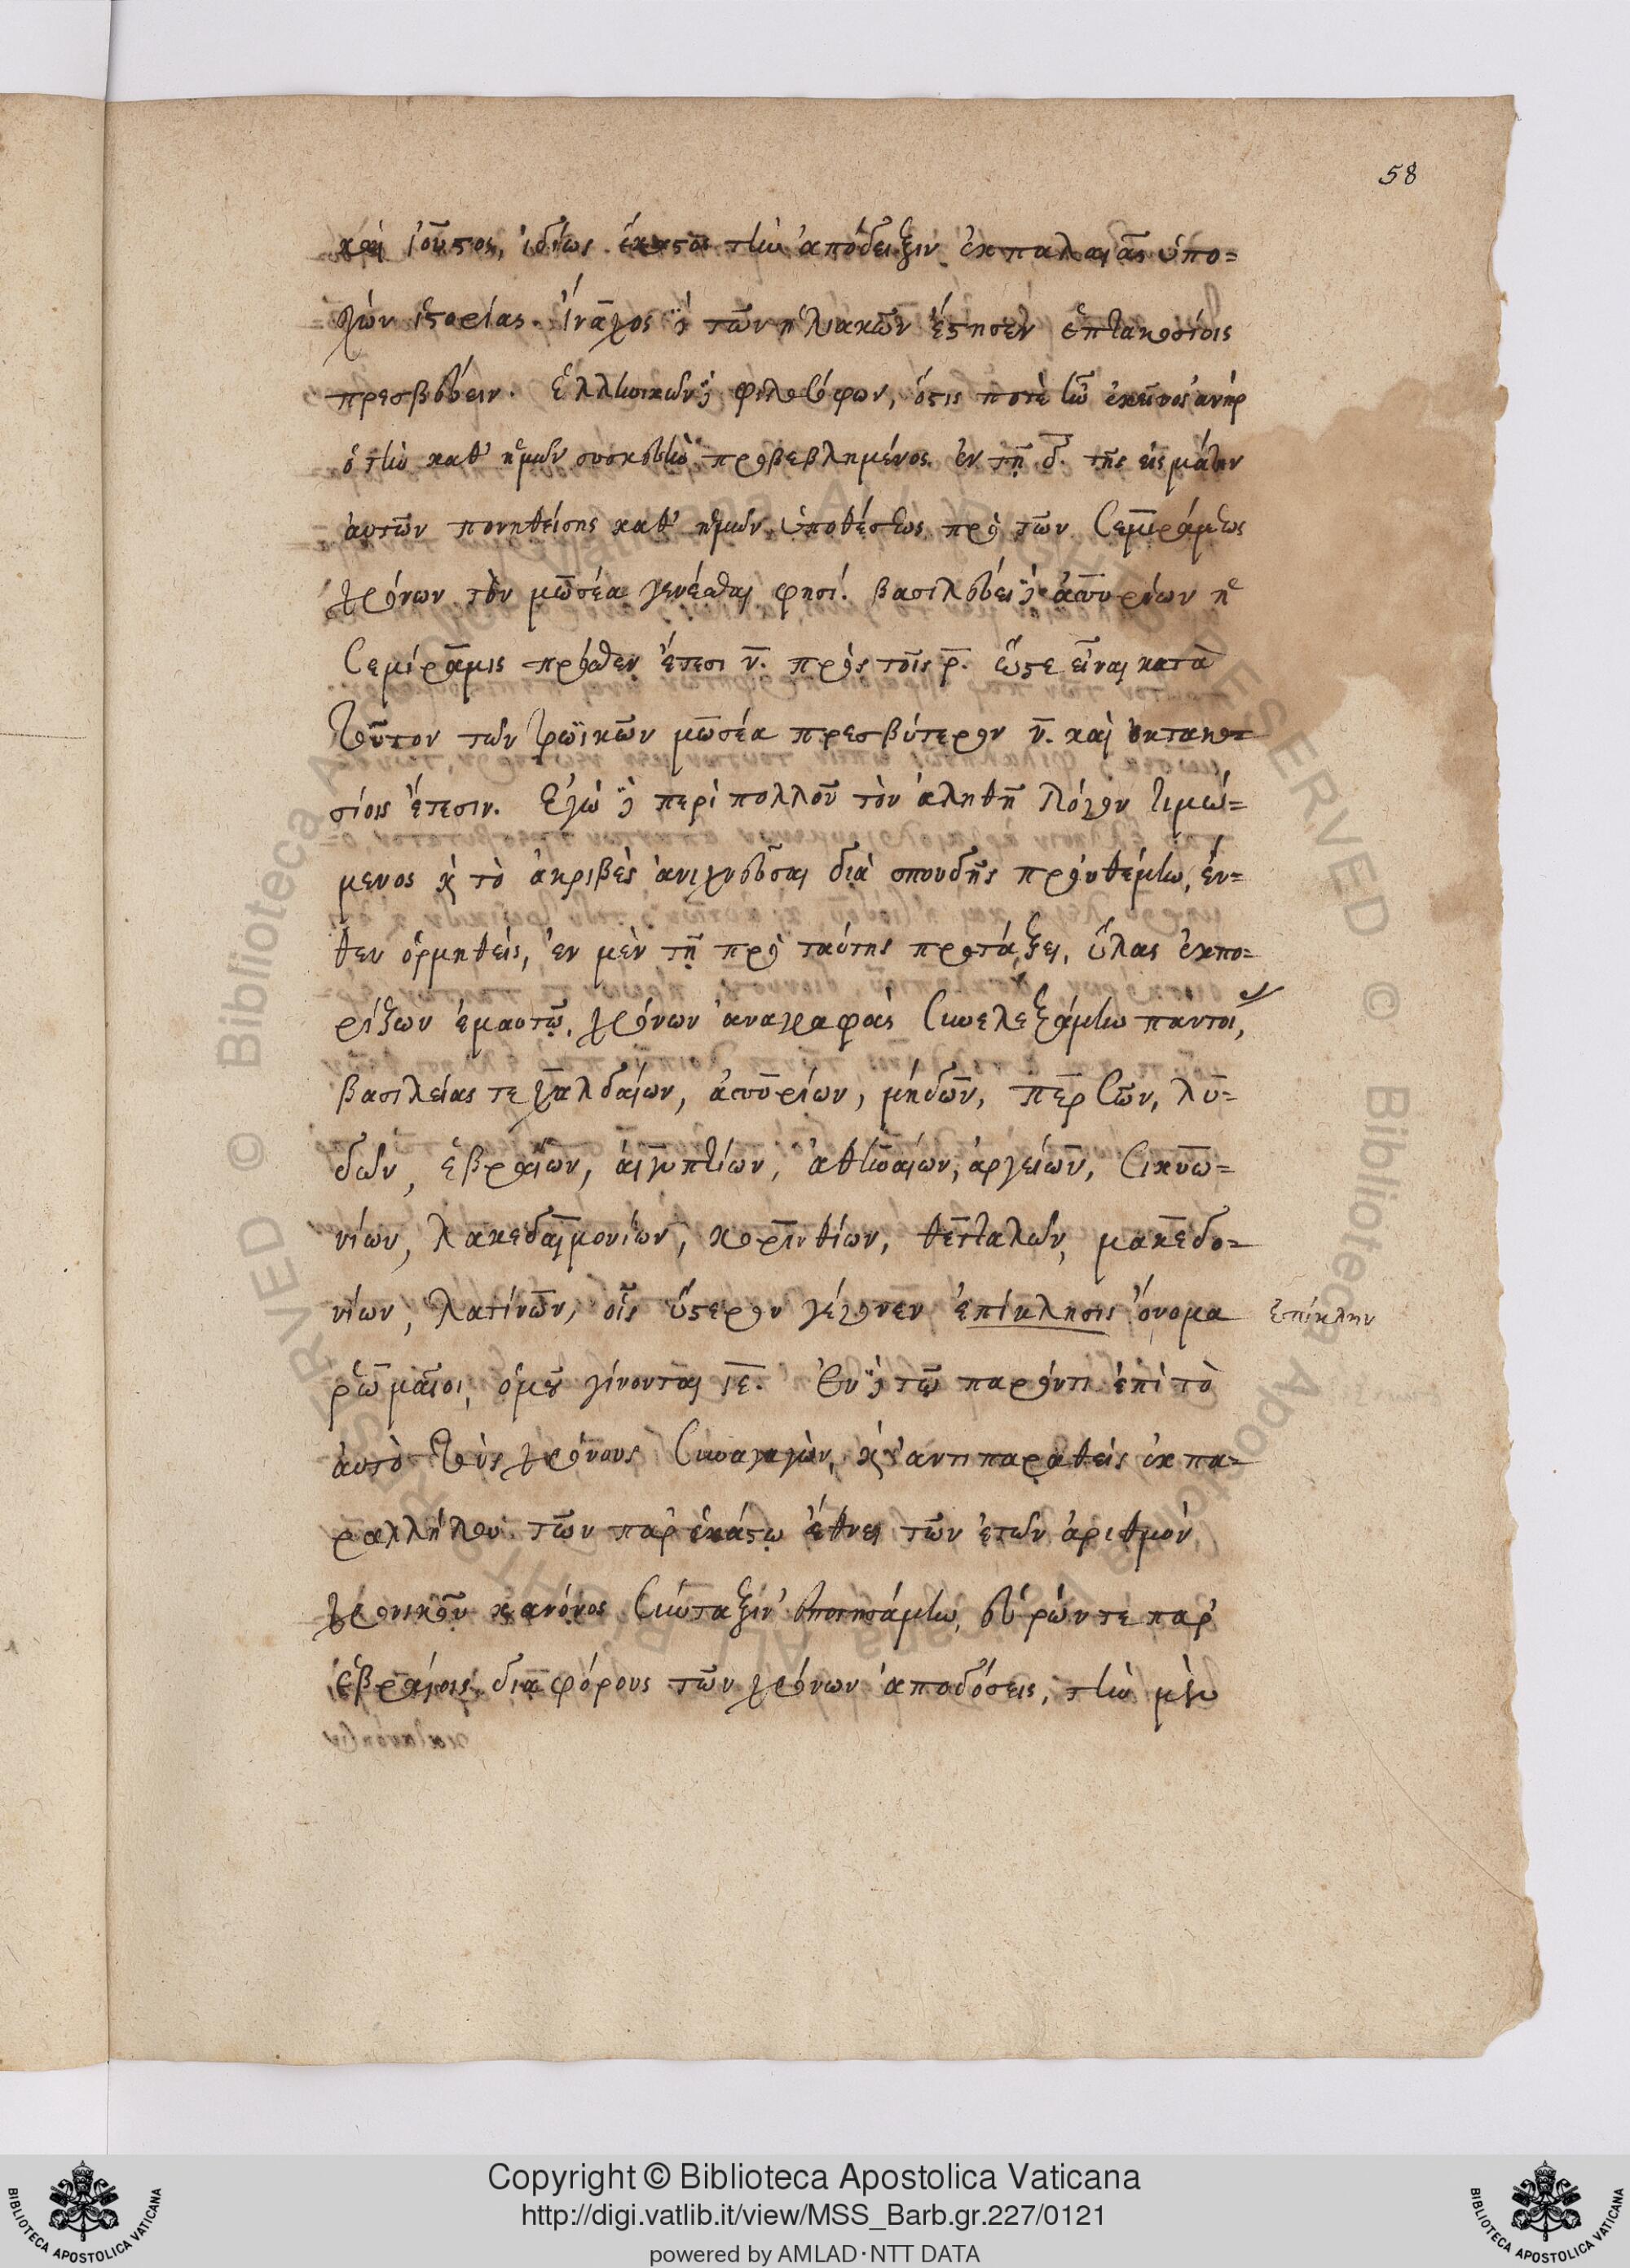 58
καὶ ἰοῦστος, ἰδίως ἕκαστος τὴν ἀπόδειξιν ἐκ παλαιᾶς ὑπο=
χὼν ἱστορίας. ἴναχος δὲ τῶν ἠλιακῶν ἔστησεν ἑπτακοσίοις
πρεσβεύειν. ἑλληνικῶν δὲ φιλοσόφων, ὅστις ποτὲ ἦν ἐκεῖνος ἀνὴρ
ὁ τὴν καθ' ἡμῶν συσκευὴν προβεβλημένος ἐν τῇ δ. τῆς εἰς μάτην
αὐτῶν πονηθείσης καθ' ἡμῶν ὑποθέσεως πρὸ τῶν Σεμιράμεως
χρόνων τὸν μωσέα γενέσθαι φησί. βασιλεύει δὲ ἀσσυρίων ἡ
Σεμίραμις πρόσθεν ἔτεσι ν. πρὸς τοῖς ρ. ὥστε εἶναι κατὰ
τοῦτον τῶν τρωϊκῶν μωσέα πρεσβύτερον ν. καὶ ὀκτακο=
σίοις ἔτεσιν. Ἐγὼ δὲ περὶ πολλοῦ τὸν ἀληθῆ λόγον τιμώ=
μενος καὶ τὸ ἀκριβὲς ἀνιχνεῦσαι διὰ σπουδῆς προυθέμην, ἔν=
θεν ὁρμηθεὶς, ἐν μὲν τῇ πρὸ ταύτης προτάξει, ὕλας ἐκπο=
ρίζων ἐμαυτῷ, χρόνων ἀναγραφὰς συνελεξάμην παντοί,
βασιλείας τε χαλδαίων, ἀσσυρίων, μήδων, περσῶν, λυ=
δῶν, ἑβραίων, αἰγυπτίων, ἀθηναίων, ἀργείων, Σικυω=
νίων, λακεδαιμονίων, κορινθίων, θετταλῶν, μακεδο=
νίων, λατίνων, οἷς ὕστερον γέγονεν ἐπίκλησις ὄνομα
ἐπίκλην
ῥωμαῖοι, ὁμοῦ γίνονται ιε. Ἐν δὲ τῷ παρόντι ἐπὶ τὸ
αὐτὸ τοὺς χρόνους συναγαγὼν, καὶ ἀντιπαραθεὶς ἐκ πα=
ραλλήλου τῶν παρ' ἑκάστῳ ἔθνει τῶν ἐτῶν ἀριθμὸν
χρονικοῦ κανόνος σύνταξιν ἐποιησάμην, εὑρών τε παρ'
ἑβραίοις διαφόρους τῶν χρόνων ἀποδόσεις, τὴν μὲν
Copyright © Biblioteca Apostolica Vaticana
http://digi.vatlib.it/view/MSS_Barb.gr.227/0121
powered by AMLAD·NTT DATA